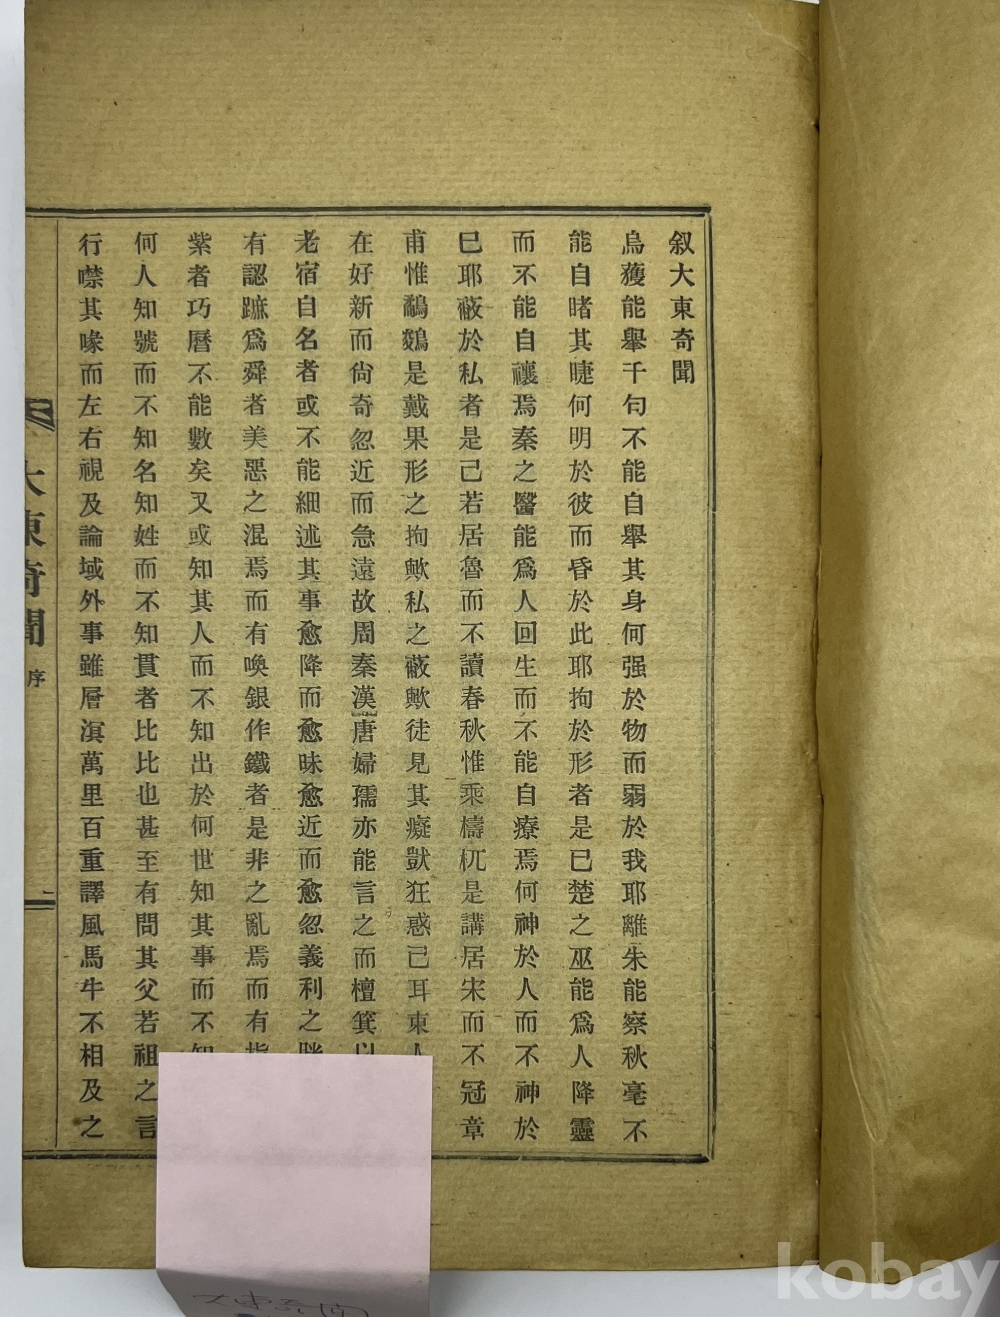 叙大東奇聞
烏獲能擧千勻不能自擧其身何强於物而弱於我耶離朱能察秋毫不
能自睹其睫何明於彼而昏於此耶拘於形者是已楚之巫能爲人降靈
而不能自禳焉秦之醫能爲人回生而不能自療焉何神於人而不神於
巳耶蔽於私者是己若居魯而不讀春秋惟乘檮杌是講居宋而不冠章
甫惟鷸鷄是戴果形之拘歟私之蔽歟徒見其癡獃狂惑已耳東人
在好新而尙奇忽近而急遠故周秦漢唐婦孺亦能言之而檀箕以
老宿自名者或不能細述其事愈降而愈昧愈近而愈忽義利之
有認蹠爲舜者美惡之混焉而有喚銀作鐵者是非之亂焉而有指
紫者巧曆不能數矣又或知其人而不知出於何世知其事而不知
何人知號而不知名知姓而不知貫者比比也甚至有問其父若祖之言
行噤其喙而左右視及論域外事雖層溟萬里百重譯風馬牛不相及之
大東奇聞
序
二
大東奇聞
kobay